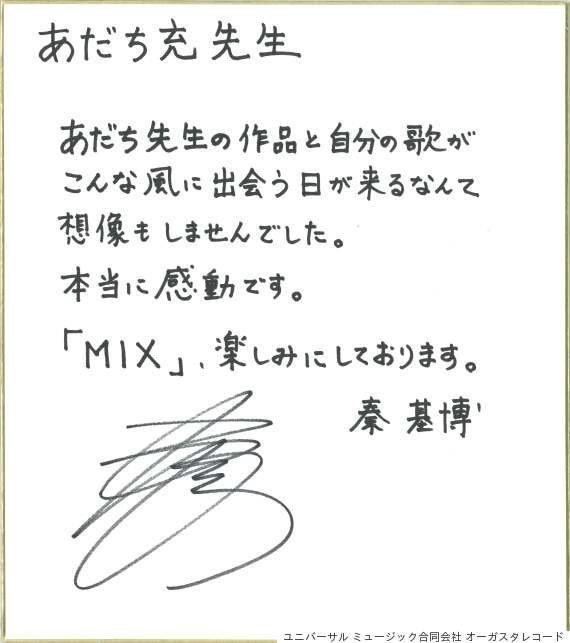 あだち充先生
あだち先生の作品と自分の歌が
こんな風に出会う日が来るなんて
想像もしませんでした。
本当に感動です。
「MIX」、楽しみにしております。
秦 基博
ユニバーサル ミュージック合同会社 オーガスタレコード